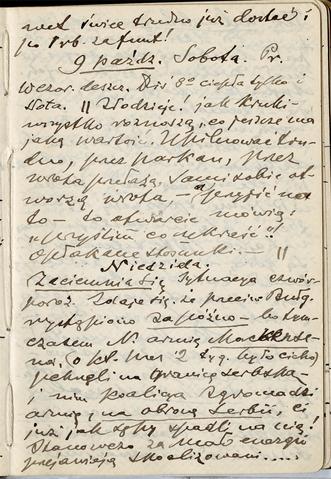 wet świce trudno już dostać i
po 1 rb. za funt!
9 paźdz. Sobota. Pr.
wczor. deszcz. Dziś 8° ciepła tylko i
słota. || Złodzieje! jak kruki
wszystko roznoszą, co jeszcze ma
jaką wartość. Upilnować tru-
dno, przez parkan, przez
wrota przełażą, sami sobie ot-
worzą wrota,
to – to otwarcie mówią:
"przyszliśmy co ukraść"!
Opłakane stosunki. — ||
Niedziela.
Zaciemnia się sytuacya czwór-
poroz. Zdaje się, że przeciw Bułg.
wystąpiono za późno – bo tym-
czasem N. armię Mackense-
na, o któ. przez 2 tyg. było cicho,
pchnęli na granicę serbską
i nim koalicya zgromadzi
armię, na obronę Serbii, ci
już jak zwykle wpadli na nią!
Stanowczo za mało energii
przejawiają skoalizowani.....